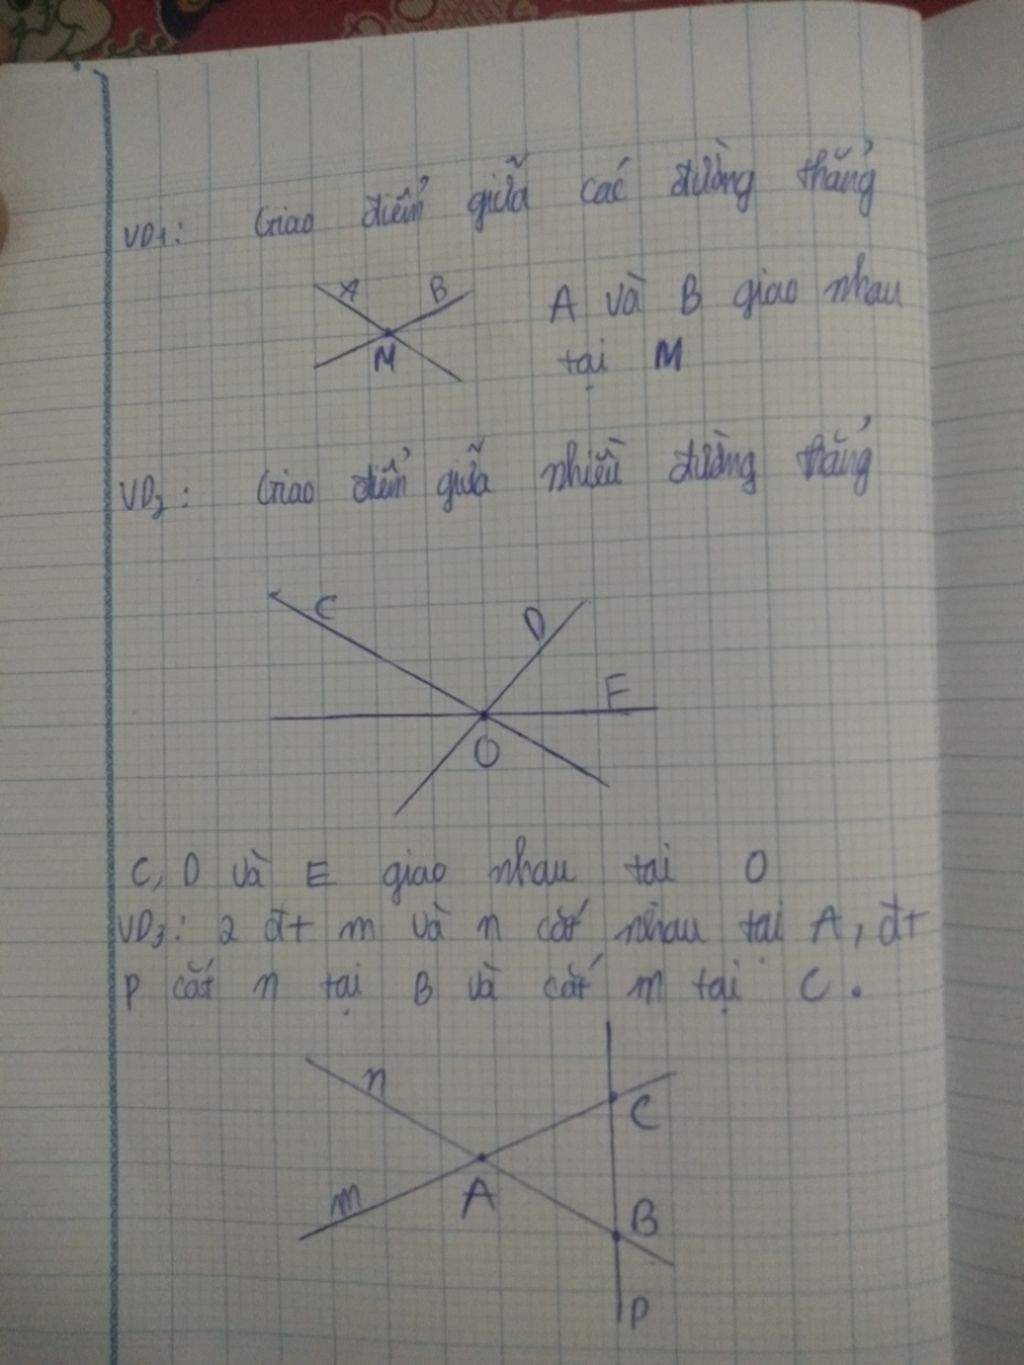 VD1: Giao điểm giữa các đường thẳng
A B
A và B giao nhau
M
tại M
VD2: Giao điểm giữa nhiều đường thẳng
C D
E
O
C, D và E giao nhau tai O
VD3: 2 đt m và n cắt nhau tại A, đt
P cắt n tại B và cắt m tại C.
n
C
m A
B
P